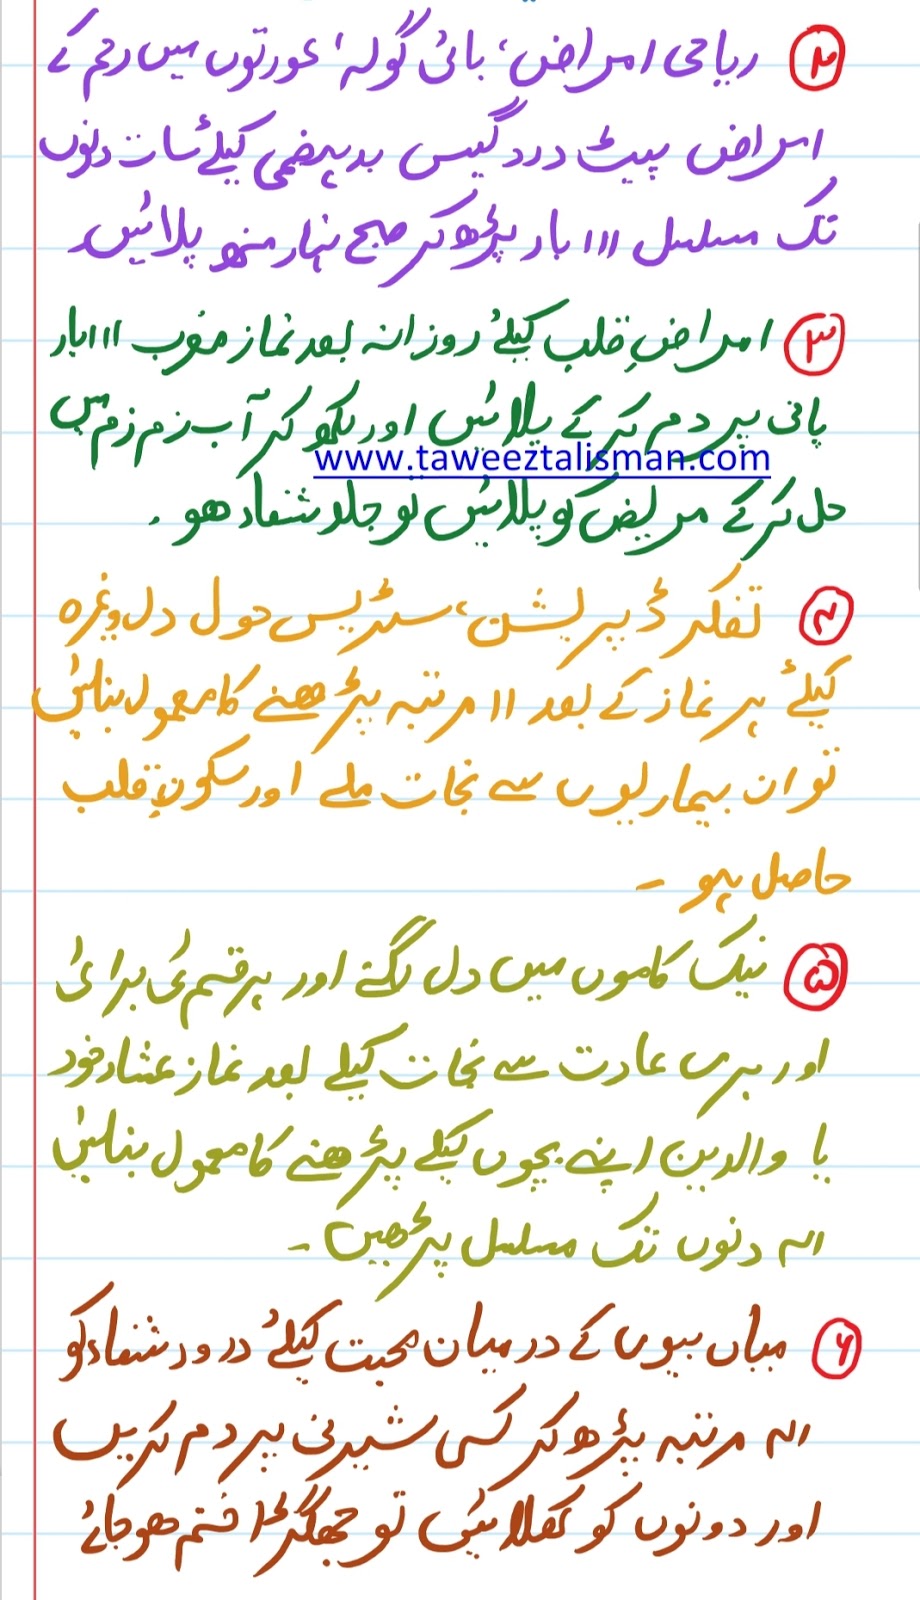 ۲ ریاحی امراض، بائی گولہ، عورتوں میں رحم کے
امراض پیٹ درد گیس بدہضمی کیلئے سات دنوں
تک مسلسل ۱۱۱ بار پڑھ کر صبح نہار منھ پلائیں۔
۳ امراضِ قلب کیلئے روزانہ بعد نماز مغرب ۱۱۱ بار
پانی پر دم کر کے پلائیں اور لکھ کر آب زم زم میں
www.taweeztalisman.com
حل کر کے مریض کو پلائیں تو جلد شفاء ھو۔
۴ تفکر ڈیپریشن، سٹریس ھول دل وغیرہ
کیلئے ہر نماز کے بعد ۱۱ مرتبہ پڑھنے کا معمول بنائیں
تو ان بیماریوں سے نجات ملے اور سکونِ قلب
حاصل ہو ۔
۵ نیک کاموں میں دل لگنے اور ہر قسم کی برائی
اور بری عادت سے نجات کیلئے بعد نماز عشاء خود
یا والدین اپنے بچوں کیلئے پڑھنے کا معمول بنائیں
۴۱ دنوں تک مسلسل پڑھیں ۔
۶ میاں بیوی کے درمیان محبت کیلئے درود شفاء کو
۴۱ مرتبہ پڑھ کر کسی شیرنی پر دم کریں
اور دونوں کو کھلائیں تو جھگڑا ختم ھو جائے